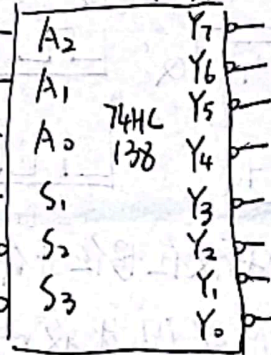 A2
A1
A0
S1
S2
S3
74HC
138
Y7
Y6
Y5
Y4
Y3
Y2
Y1
Y0